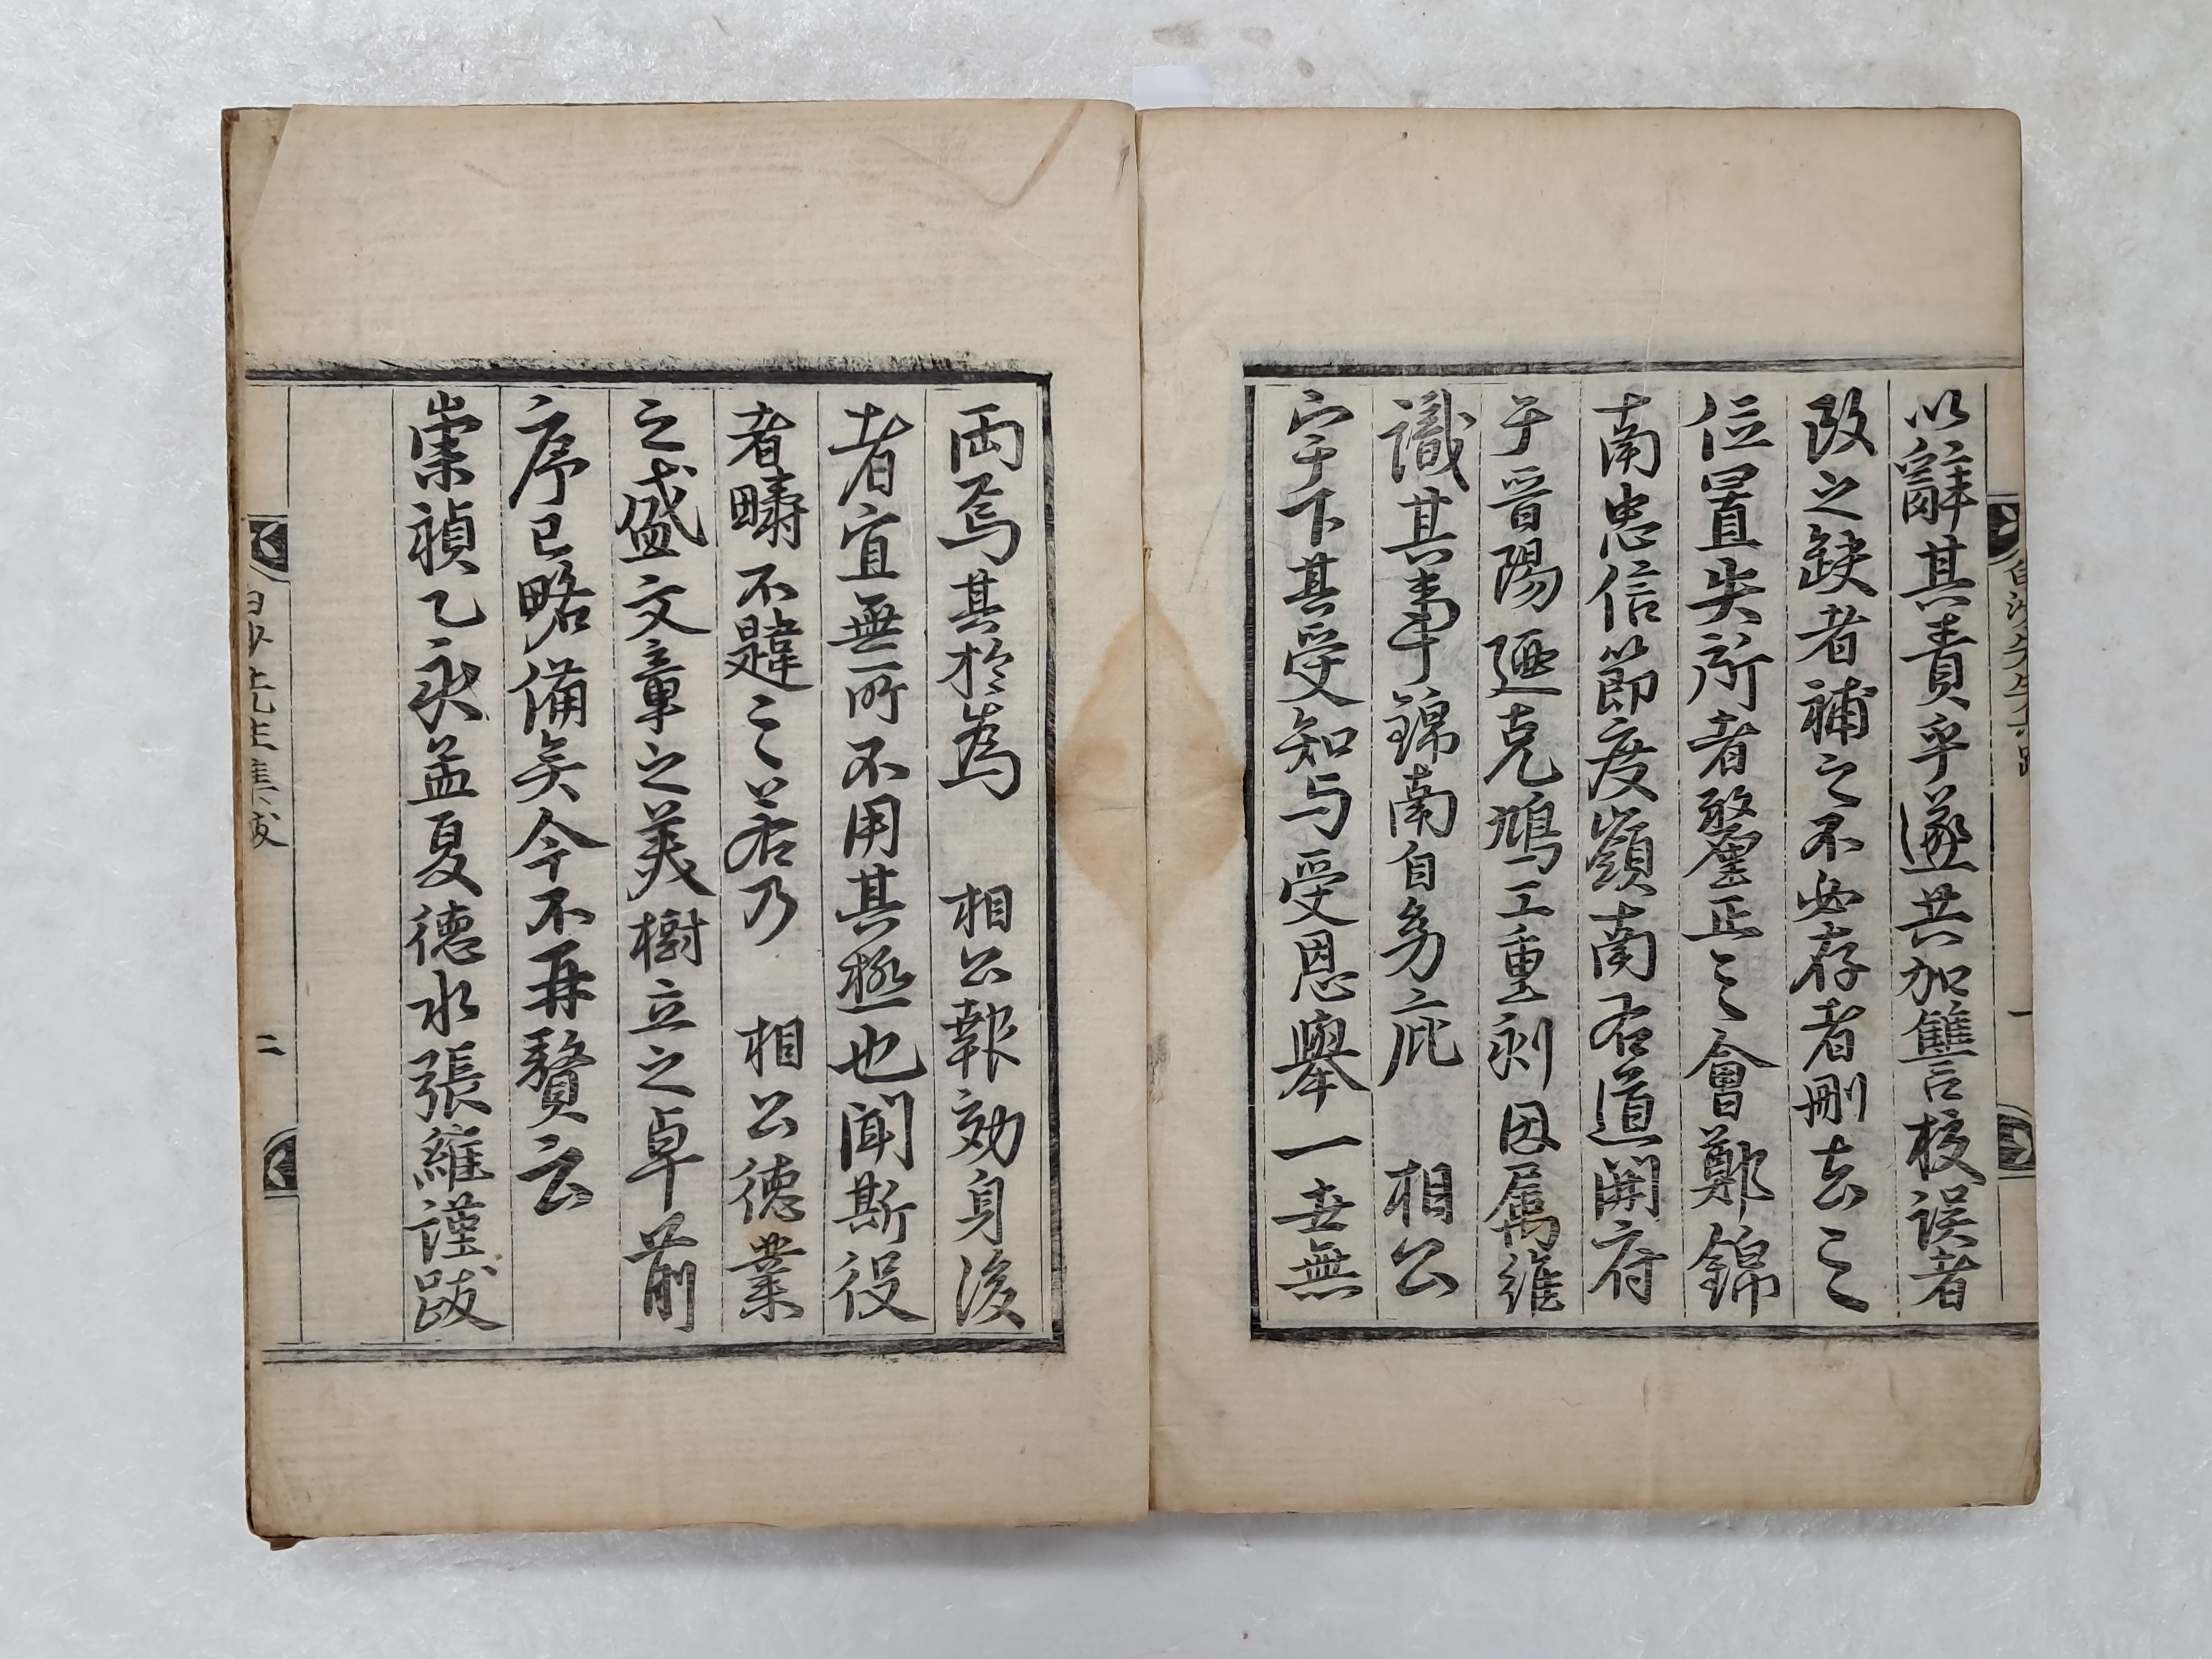 以辭其責乎遂共加讐校誤者
改之缺者補之不必存者刪去之
位置失所者釐正之會鄭錦
南忠信節度嶺南右道開府
于晋陽亟克鳩工重剥因属維
識其事錦南自免庇　相公
宇下其受知与受恩舉一世無
両焉其於為　相公報効身後
者宜無所不用其極也聞斯役
者疇不韙之若乃　相公德業
之盛文章之美樹立之卓前
序已略備矣今不再贅云
崇禎乙亥孟夏德水張維謹跋
白沙先生集跋
二